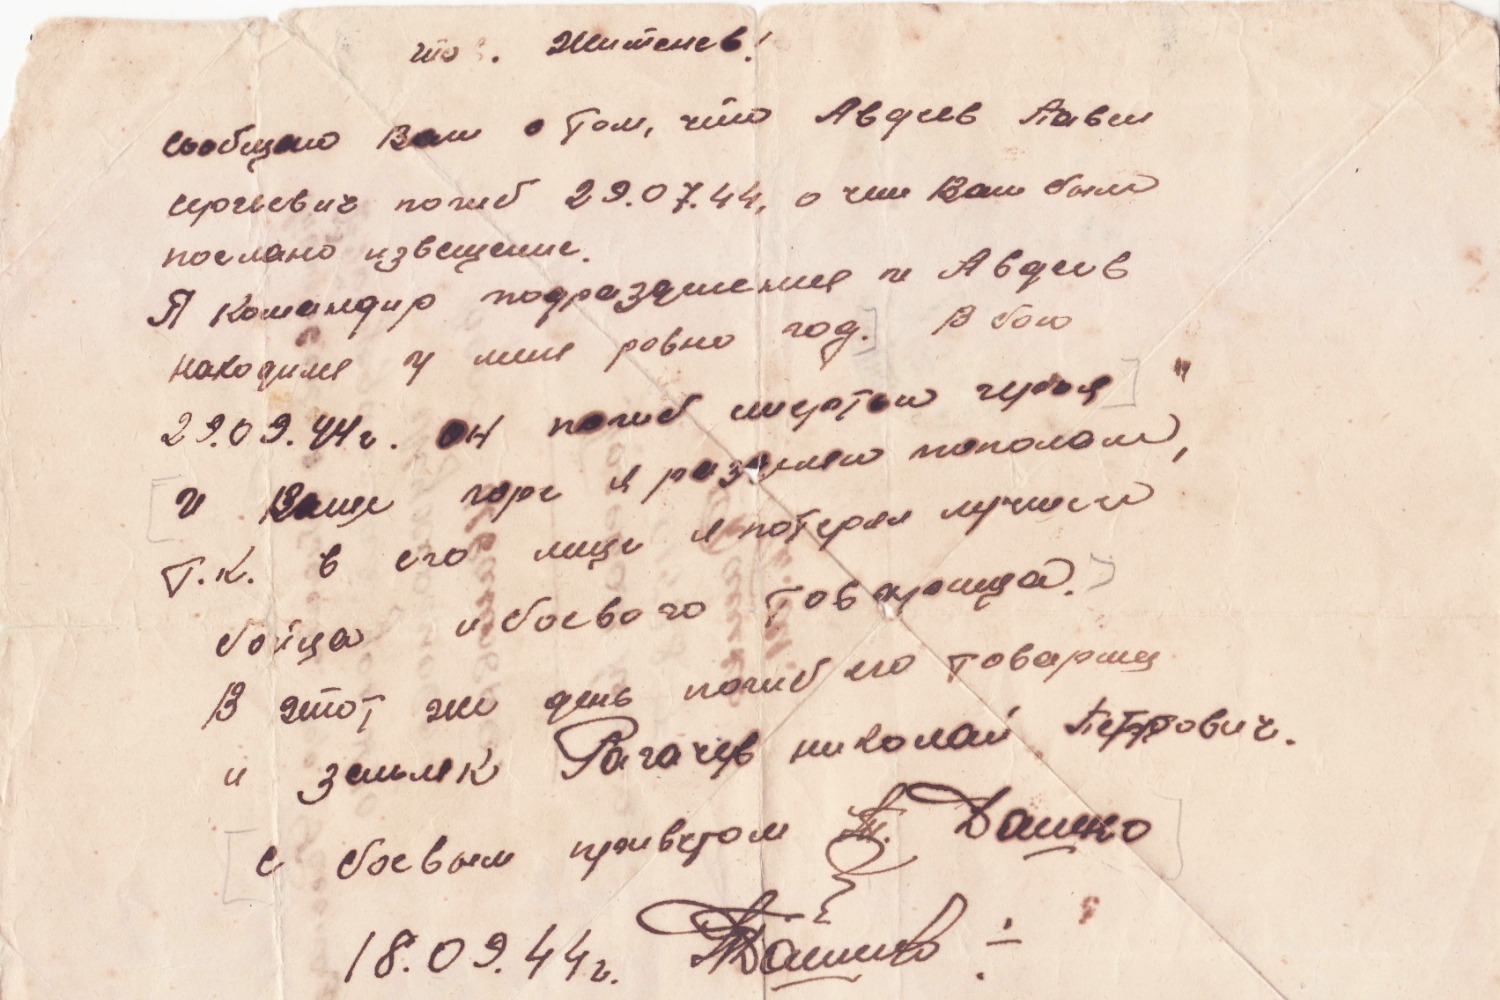 тов. Житенев!
сообщаю Вам о том, что Авдеев Павел
сергеевич погиб 29.07.44, о чем Вам было
послано извещение.
Я командир подразделения и Авдеев
находился у меня ровно год. В бою
29.09.44г. он погиб смертью героя
и Ваше горе я разделяю пополам,
т.к. в его лице я потерял лучшего
бойца и боевого товарища.
В этот же день погиб его товарищ
и земляк Рагачев николай Петрович.
с боевым приветом Дашко
18.09.44г. Дашко